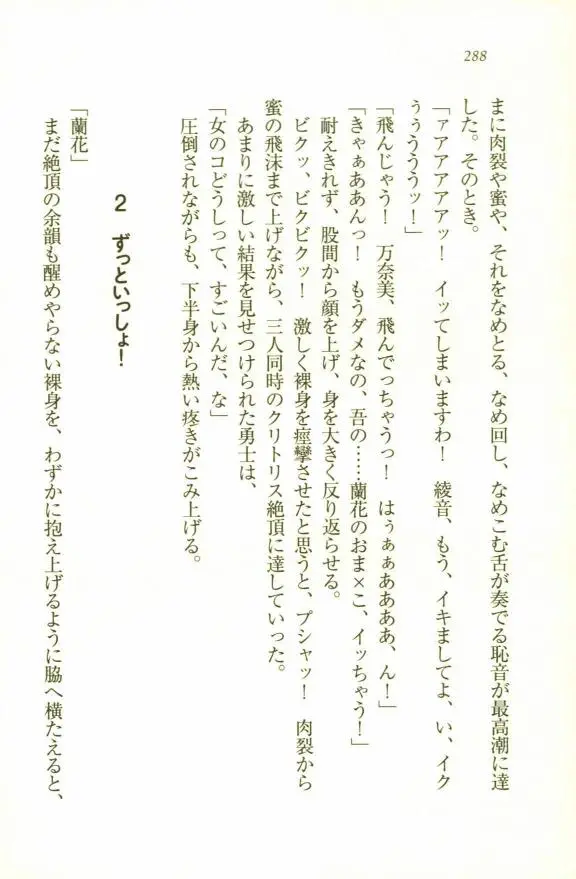 288
まに肉裂や蜜や、それをなめとる、なめ回し、なめこむ舌が奏でる恥音が最高潮に達
した。そのとき。
「ァアアアアアッ！　イッてしまいますわ！　綾音、もう、イキましてよ、い、イク
ぅぅうううッ！」
「飛んじゃう！　万奈美、飛んでっちゃうっ！　はぅぁぁああああ、ん！」
「きゃぁああんっ！　もうダメなの、吾の……蘭花のおま×こ、イッちゃう！」
耐えきれず、股間から顔を上げ、身を大きく反り返らせる。
ビクッ、ビクビクッ！　激しく裸身を痙攣させたと思うと、プシャッ！　肉裂から
蜜の飛沫まで上げながら、三人同時のクリトリス絶頂に達していった。
あまりに激しい結果を見せつけられた勇士は、
「女のコどうしって、すごいんだ、な」
圧倒されながらも、下半身から熱い疼きがこみ上げる。
2　ずっといっしょ！
「蘭花」
まだ絶頂の余韻も醒めやらない裸身を、わずかに抱え上げるように脇へ横たえると、